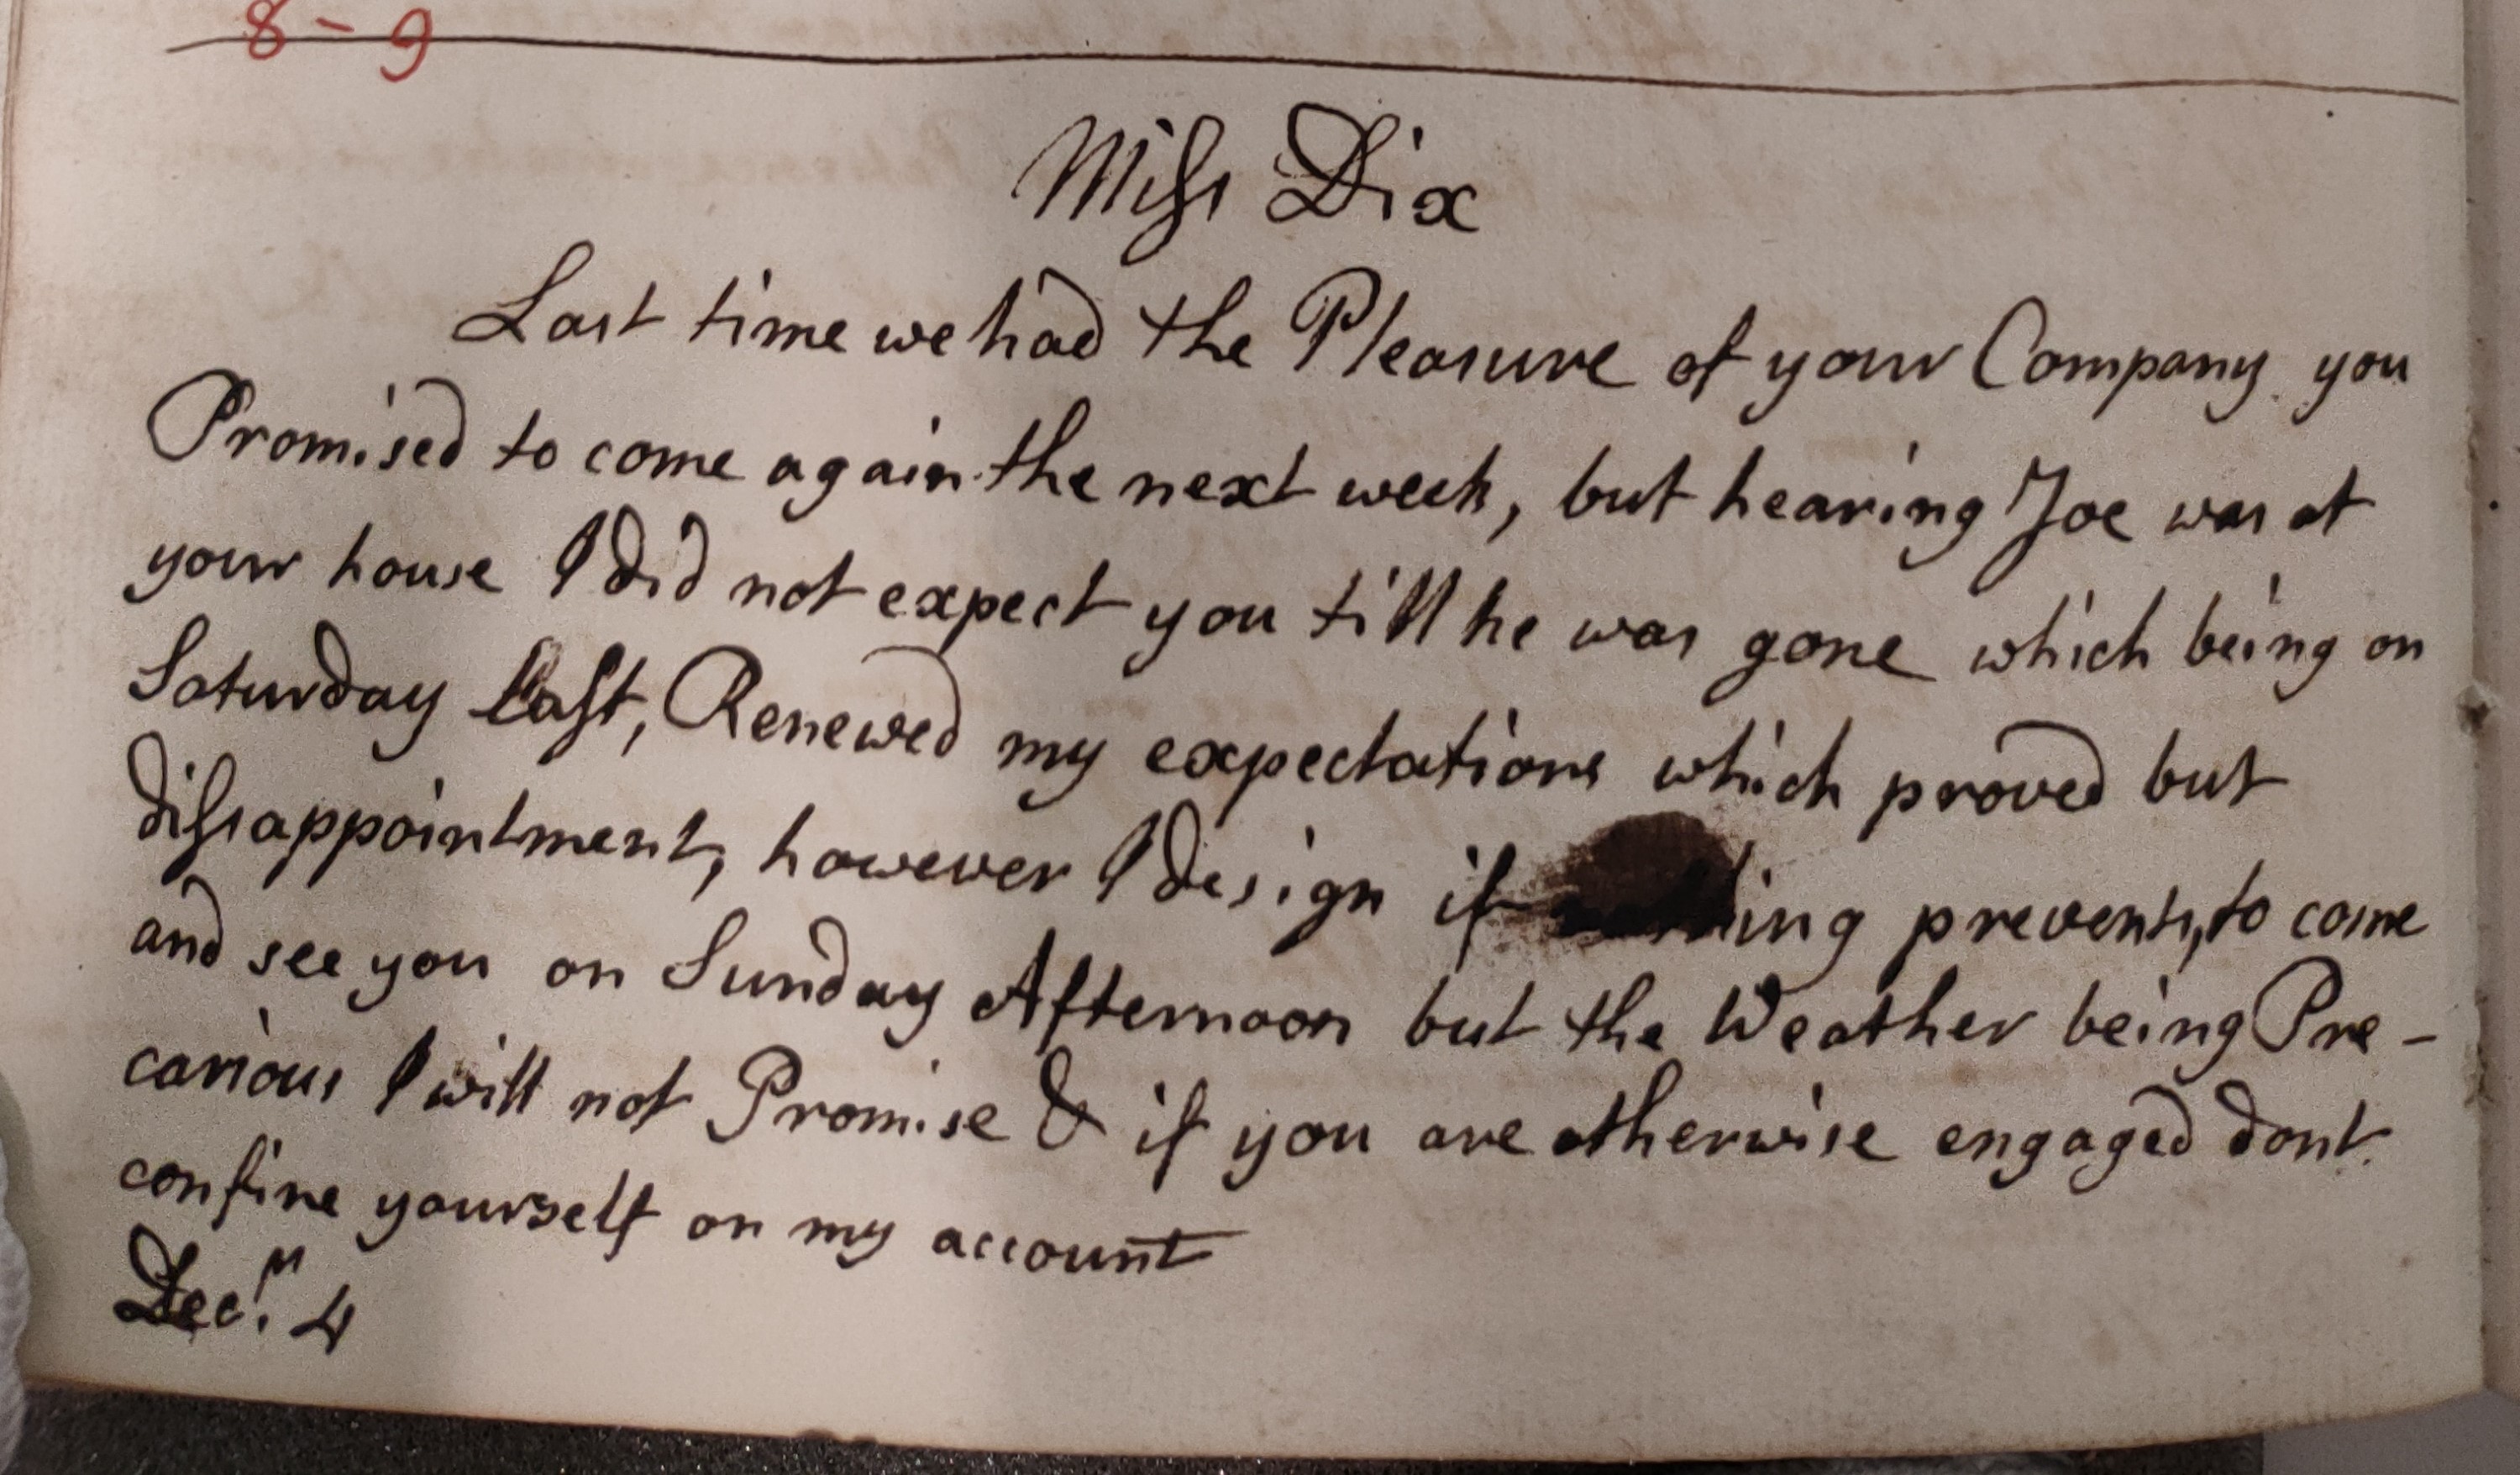 8-9
Miss Dix
Last time we had the Pleasure of your Company you
Promised to come again the next week, but hearing Joe was at
your house I did not expect you till he was gone which being on
Saturday last, Renewed my expectations which proved but
dissappointment, however I design if nothing prevents, to come
and see you on Sunday Afternoon but the Weather being Pre-
carious I will not Promise & if you are otherwise engaged dont
confine yourself on my account
Decr. 4